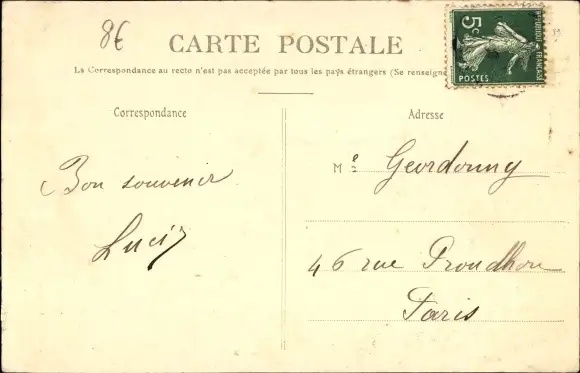 8€
CARTE POSTALE
La Correspondance au recto n'est pas acceptée par tous les pays étrangers (Se renseigne
5c
POSTES
FRANÇAISE
Correspondance
Adresse
Bon souvenir
M e
46 rue Proudhon
Paris